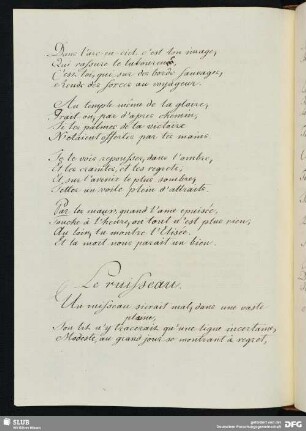 Dans l'arc-en-ciel c'est ton image,
Qui rassure le laboureur,
C'est toi, que, sur des bords sauvages,
Rends des forces au voyageur.
Au temple même de la gloire,
Irait-on, par d'âpres chemins,
Si les palmes de la victoire
N'étaient offertes par tes mains
Je te vois repousser, dans l'ombre,
Et les craintes, et les regrets,
Et, sur l'avenir le plus sombre,
Jetter un voile plein d'attraits.
Par les maux, quand l'ame épuisée,
touche à l'heure, où tout n'est plus rien,
Au loin, tu montre l'Elisée.
Et la mort nous paraît un bien.
Le ruisseau.
Un ruisseau suivait mal, dans une vaste
plaine,
Son lit n'y traçorait qu'une ligne incertaine,
Modeste, au grand jour se montrant à regret,
SLUB
DFG